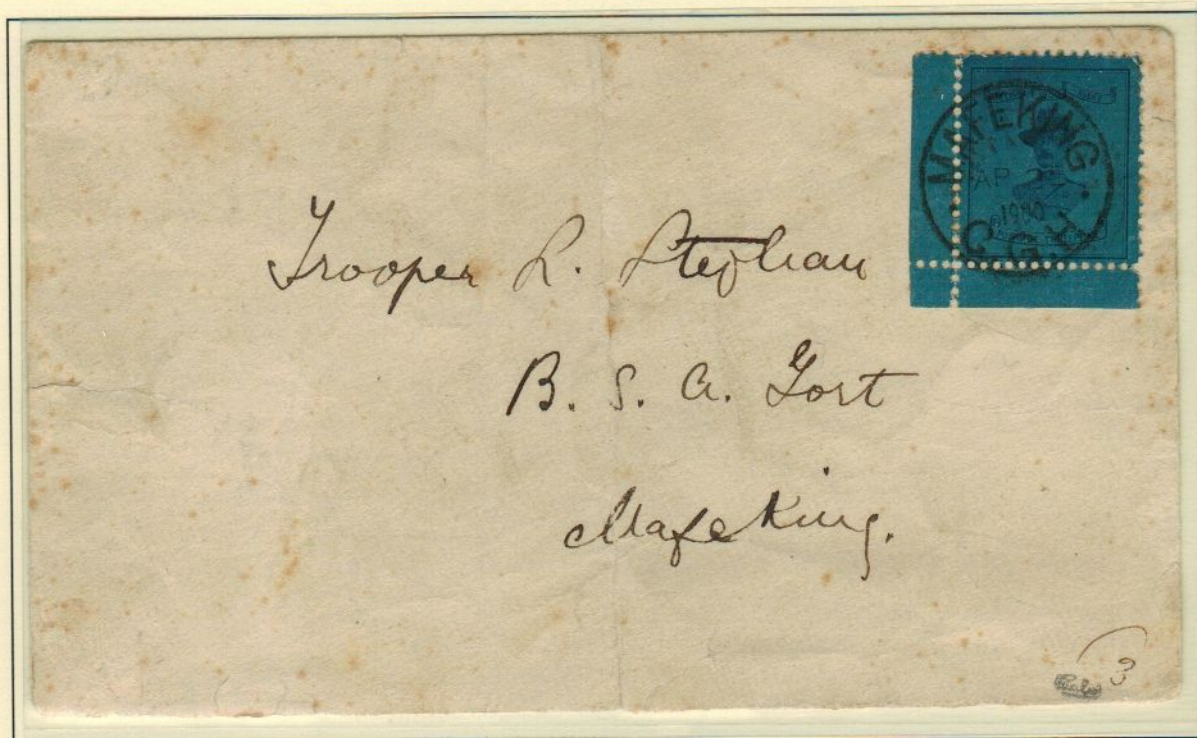 MAFEKING
AP 2
1900
C.G.H.
Trooper L. Stephan
B. S. A. Fort
Mafeking.
3